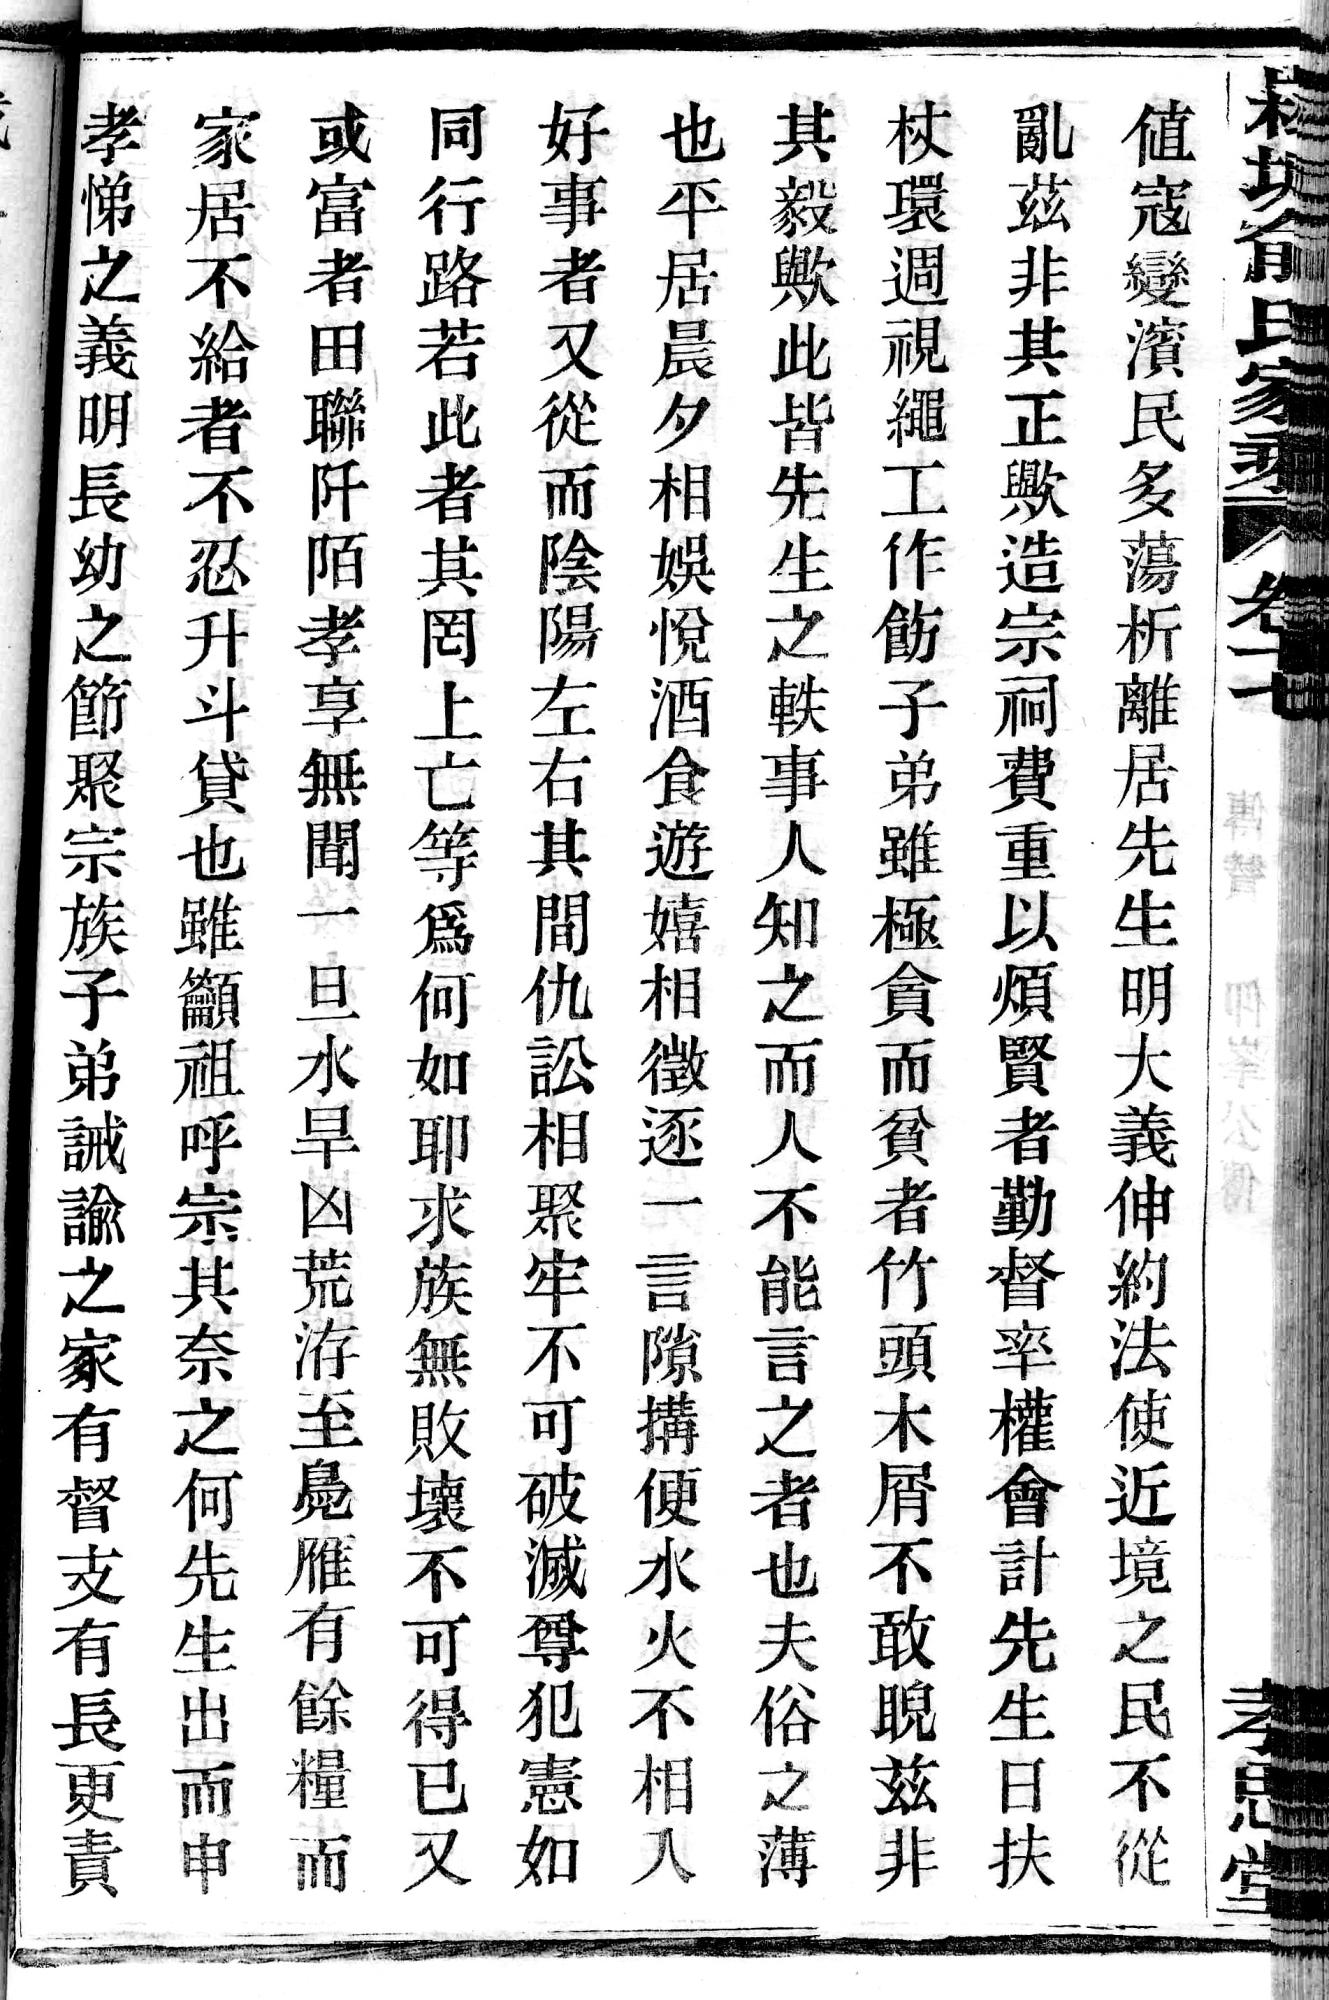 俞氏家乘 卷十七 孝思堂
値寇變濱民多蕩析離居先生明大義伸約法使近境之民不從
亂茲非其正歟造宗祠費重以煩賢者勤督率權會計先生日扶
杖環週視繩工作飭子弟雖極貪而貧者竹頭木屑不敢睨茲非
其毅歟此皆先生之軼事人知之而人不能言之者也夫俗之薄
也平居晨夕相娛悅酒食遊嬉相徵逐一言隙搆便水火不相入
好事者又從而陰陽左右其間仇訟相聚牢不可破滅尊犯憲如
同行路若此者其罔上亡等爲何如耶求族無敗壞不可得已又
或富者田聯阡陌孝享無聞一旦水旱凶荒洊至鳧雁有餘糧而
家居不給者不忍升斗貸也雖籲祖呼宗其奈之何先生出而申
孝悌之義明長幼之節聚宗族子弟誡諭之家有督支有長更責